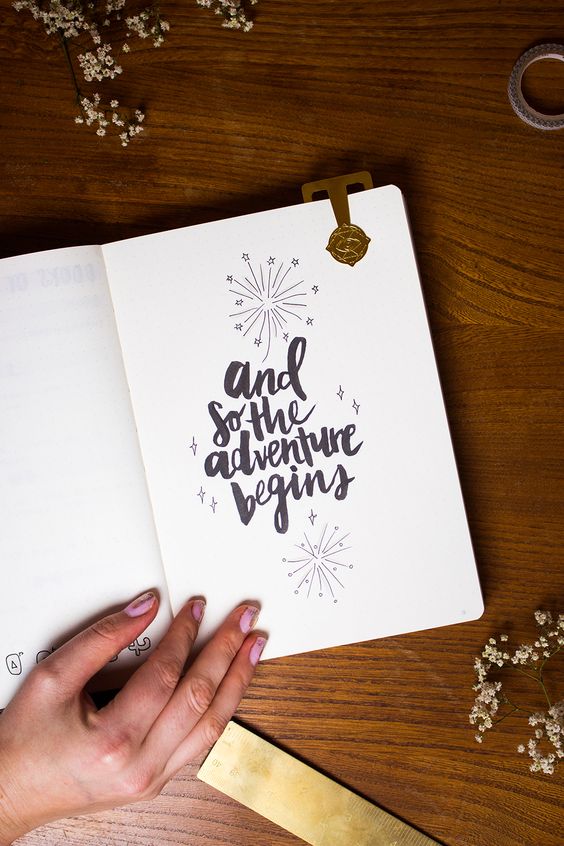 and
so the
adventure
begins